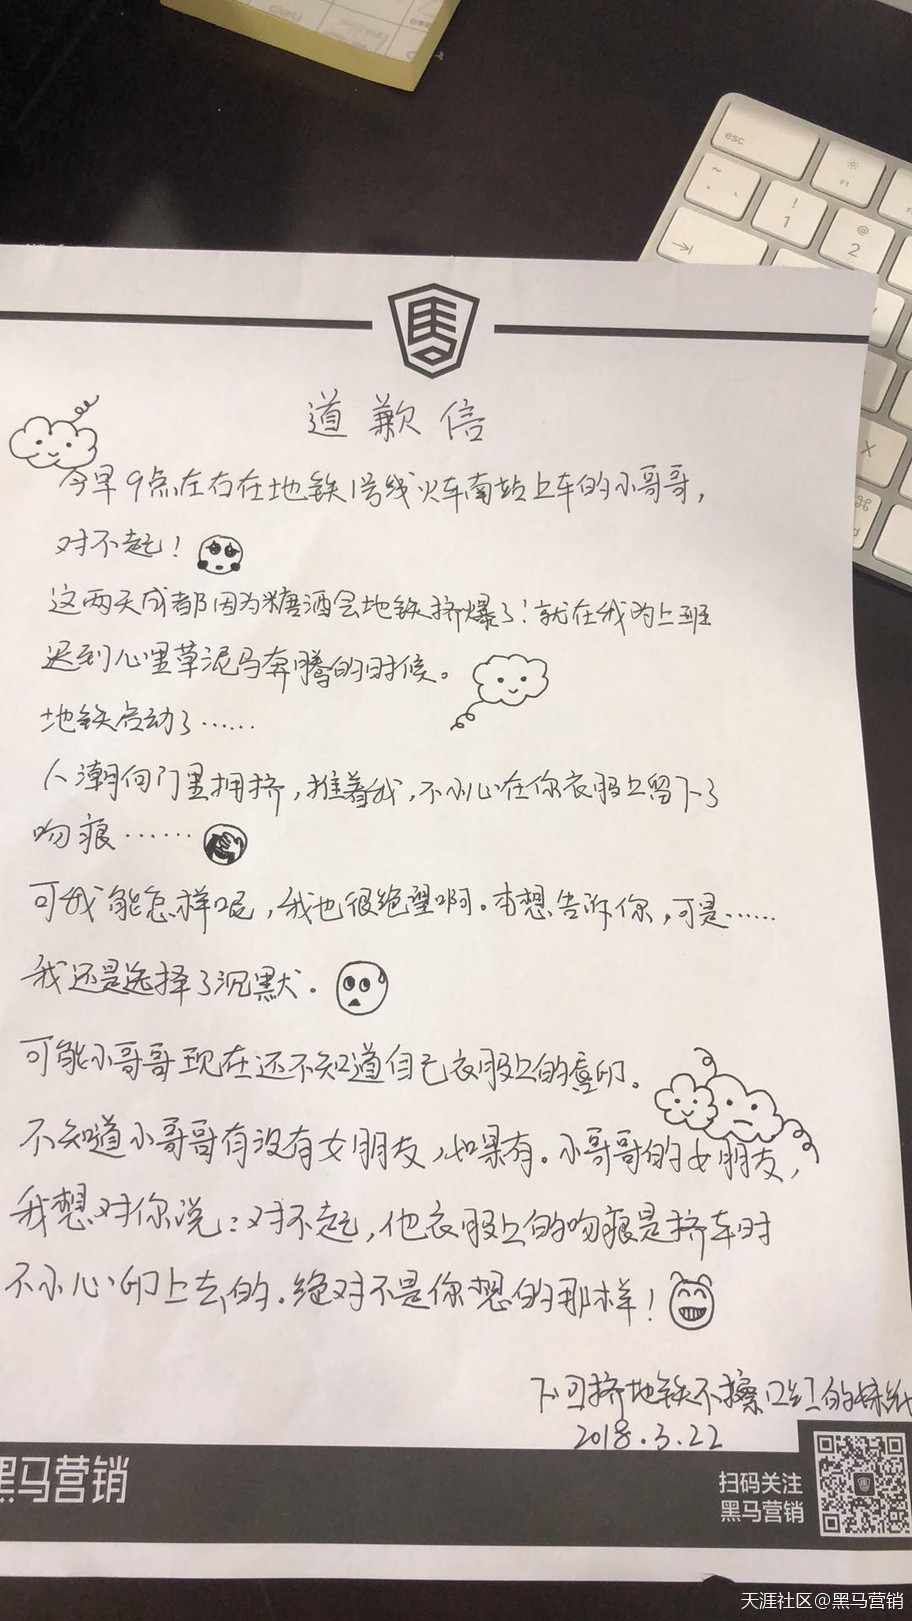 esc
F1
~
!
1
@
2
X
道歉信
今早9点左右在地铁1号线火车南站上车的小哥哥，
对不起！
这两天成都因为糖酒会地铁挤爆了！就在我为上班
迟到心里草泥马奔腾的时候。
地铁启动了……
人潮向门里拥挤，推着我，不小心在你衣服上留下了
吻痕……
可我能怎样呢，我也很绝望啊。本想告诉你，可是……
我还是选择了沉默。
可能小哥哥现在还不知道自己衣服上的唇印。
不知道小哥哥有没有女朋友，如果有。小哥哥的女朋友，
我想对你说：对不起，他衣服上的吻痕是挤车时
不小心印上去的。绝对不是你想的那样！
下回挤地铁不擦口红的妹纸
2018.3.22
黑马营销
扫码关注
黑马营销
天涯社区@黑马营销